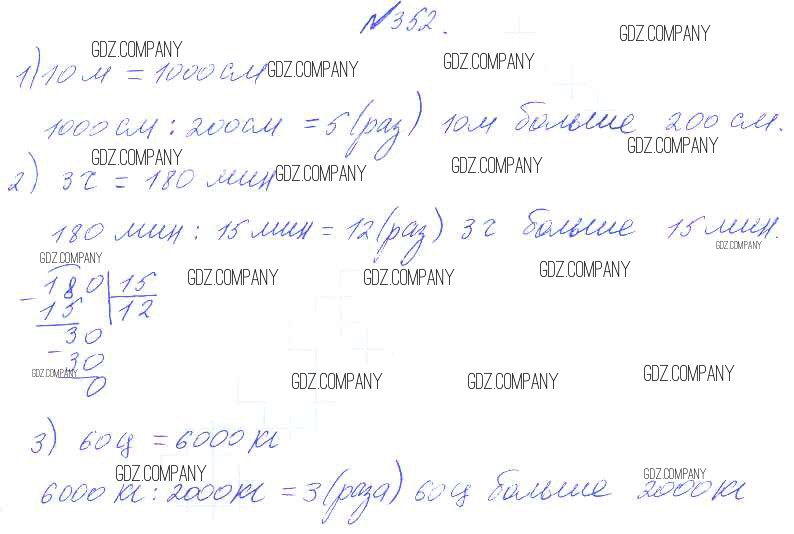 №352.
GDZ.COMPANY GDZ.COMPANY GDZ.COMPANY
1) 10 м = 1000 см GDZ.COMPANY
1000 см : 200 см = 5 (раз) 10 м больше 200 см.
GDZ.COMPANY GDZ.COMPANY GDZ.COMPANY
2) 3 ч = 180 мин GDZ.COMPANY
180 мин : 15 мин = 12 (раз) 3 ч больше 15 мин.
GDZ.COMPANY GDZ.COMPANY
- 180 15 GDZ.COMPANY GDZ.COMPANY GDZ.COMPANY
15 12
30
- 30
GDZ.COMPANY 0 GDZ.COMPANY GDZ.COMPANY GDZ.COMPANY
3) 60 ц = 6000 кг
GDZ.COMPANY GDZ.COMPANY
6000 кг : 2000 кг = 3 (раза) 60 ц больше 2000 кг